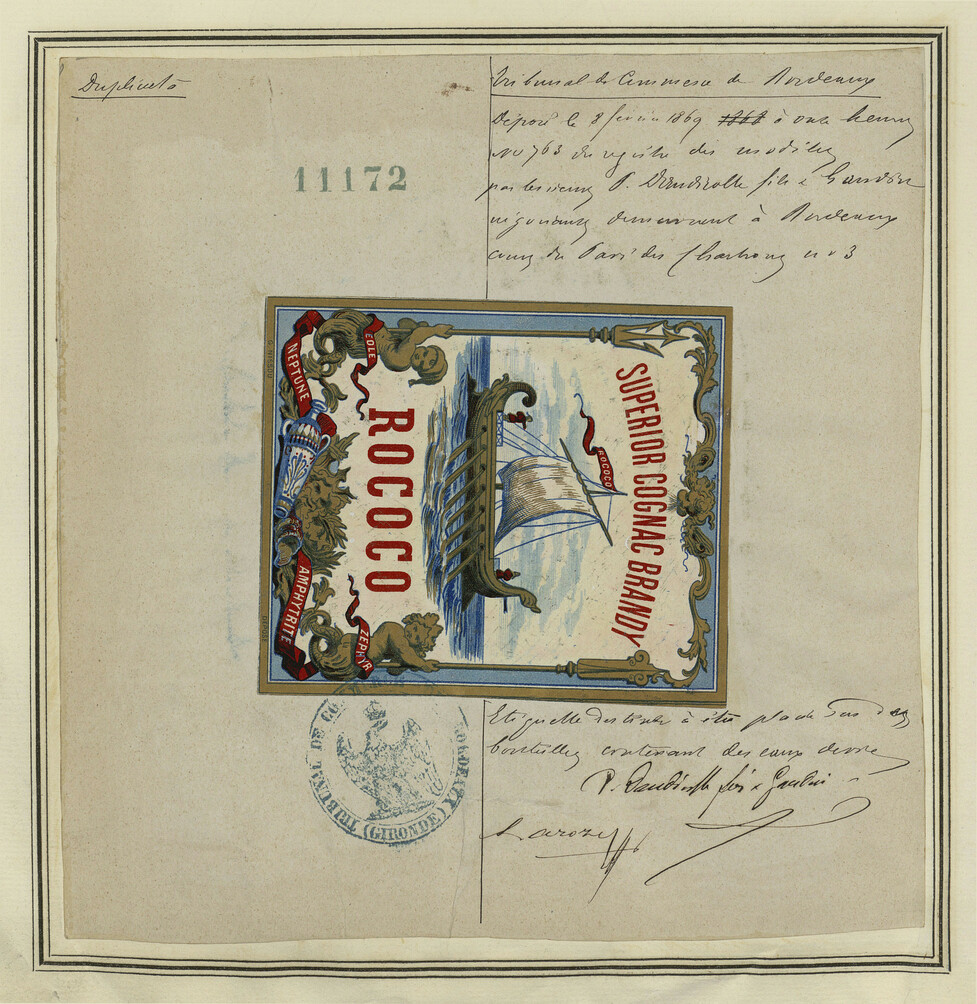 Duplicata
Tribunal de Commerce de Bordeaux
Déposé le 8 février 1869 1868 à onze heures
No 763 du registre des modèles
par les sieurs P. fils & Gaudin
négociants demeurant à Bordeaux
cours du Pavé des Chartrons no 3
11172
SUPERIOR COGNAC BRANDY
ROCOCO
ROCOCO
EOLE
NEPTUNE
AMPHYTRITE
ZEPHYR
Etiquette destinée à être placée sur des
bouteilles contenant des eaux de vie
P. fils & Gaudin
Laroze
TRIBUNAL DE COMMERCE BORDEAUX (GIRONDE)